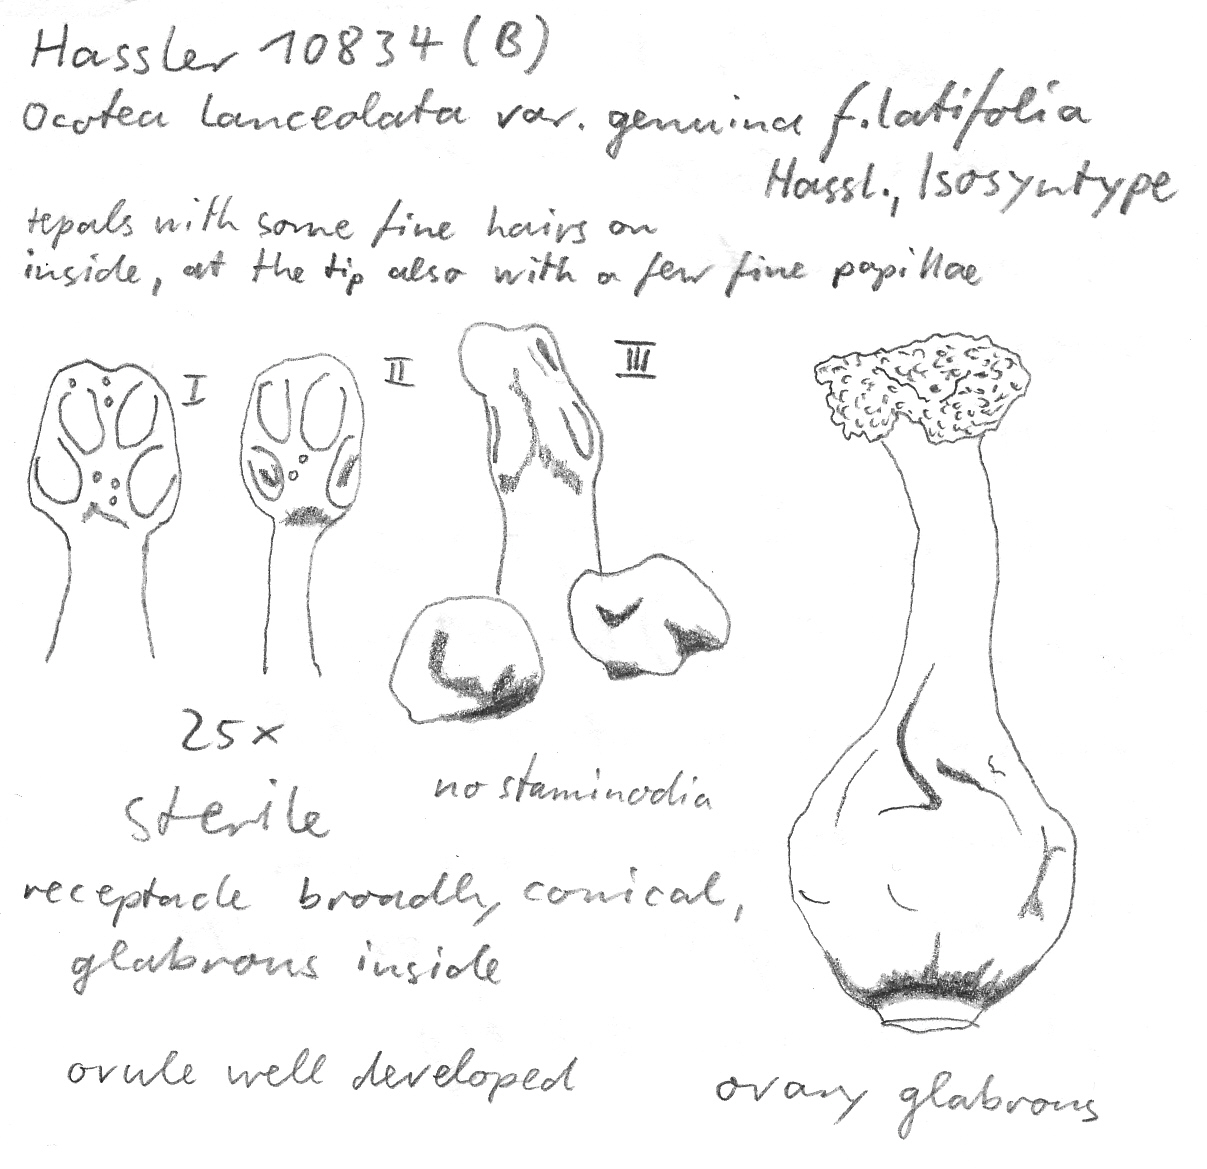 Hassler 10834 (B)
Ocotea lanceolata var. genuina f. latifolia
Hassl., Isosyntype
tepals with some fine hairs on
inside, at the tip also with a few fine papillae
I II III
25x
sterile
no staminodia
receptacle broadly conical,
glabrous inside
ovule well developed
ovary glabrous